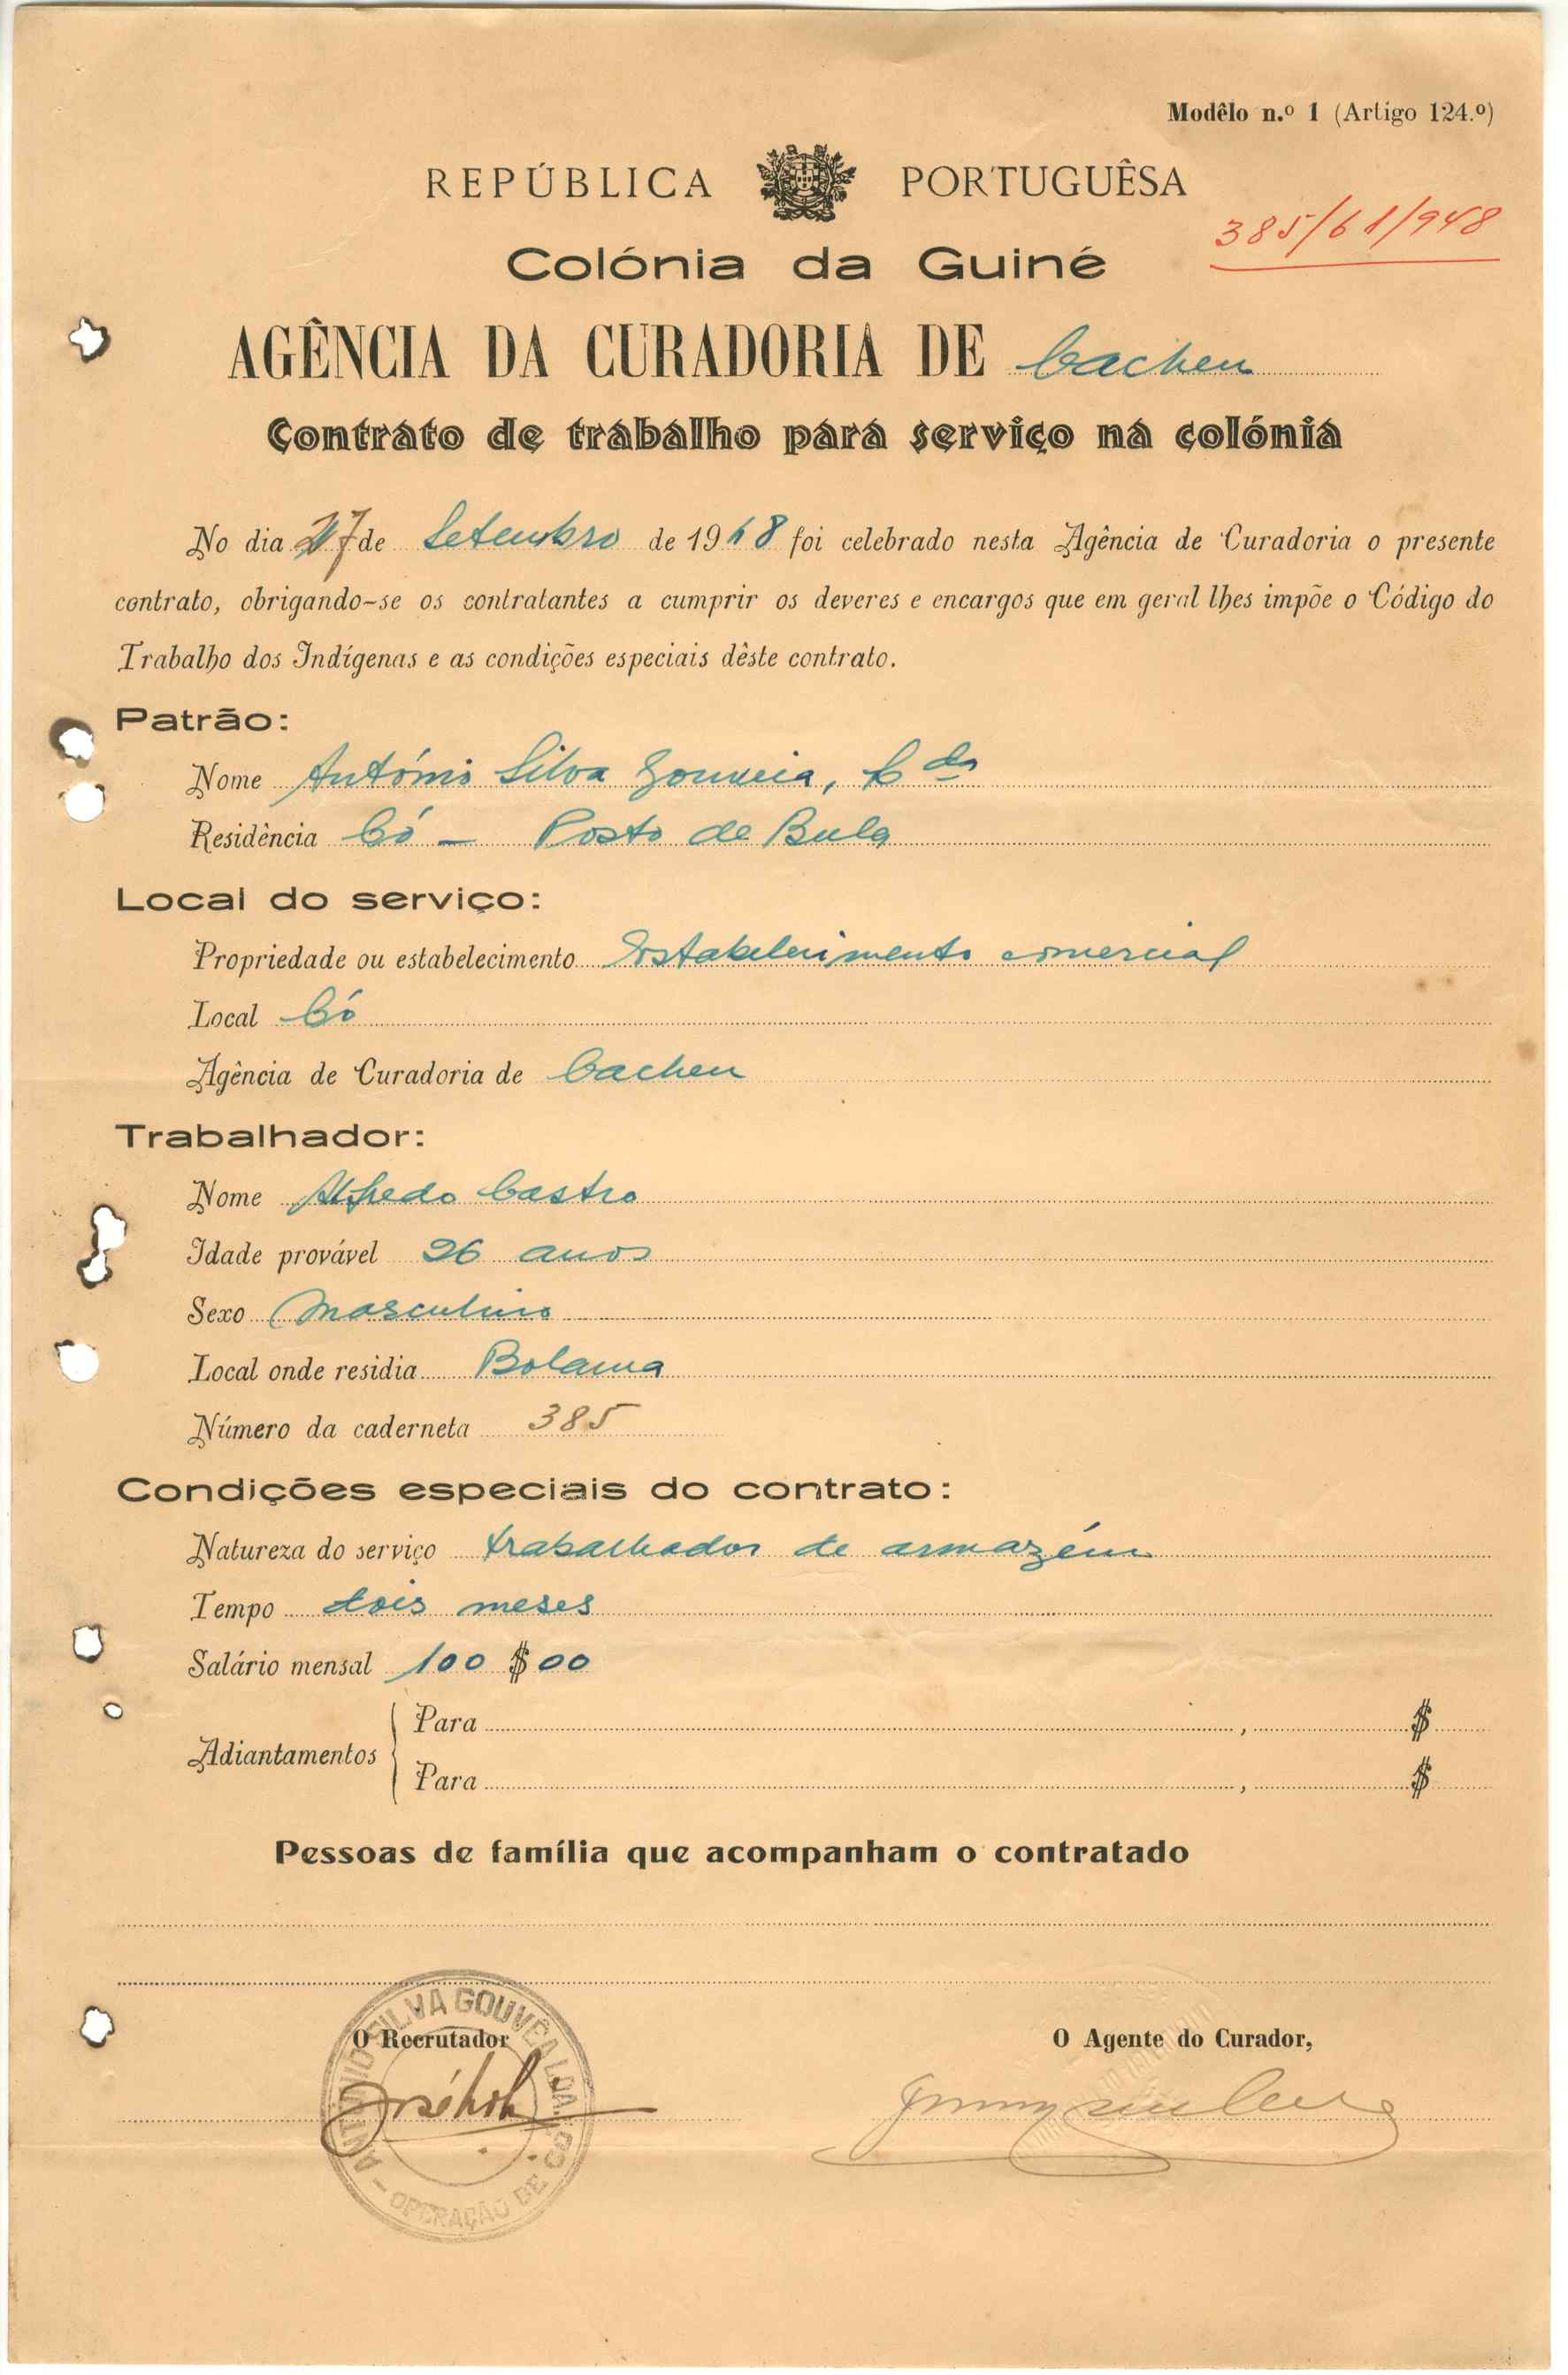 Modêlo n.º 1 (Artigo 124.º)
REPÚBLICA PORTUGUÊSA
385/61/948
Colónia da Guiné
AGÊNCIA DA CURADORIA DE Cacheu
Contrato de trabalho para serviço na colónia
No dia 27 de Setembro de 1948 foi celebrado nesta Agência de Curadoria o presente
contrato, obrigando-se os contratantes a cumprir os deveres e encargos que em geral lhes impõe o Código do
Trabalho dos Indígenas e as condições especiais dêste contrato.
Patrão:
Nome António Silva Gouveia, Lda
Residência Có - Posto de Bula
Local do serviço:
Propriedade ou estabelecimento Estabelecimento comercial
Local Có
Agência de Curadoria de Cacheu
Trabalhador:
Nome Alfredo Castro
Idade provável 26 anos
Sexo Masculino
Local onde residia Bolama
Número da caderneta 385
Condições especiais do contrato:
Natureza do serviço trabalhador de armazém
Tempo dois meses
Salário mensal 100$00
Adiantamentos
Para , $
Para , $
Pessoas de família que acompanham o contratado
O Recrutador
O Agente do Curador,
ANTONIO SILVA GOUVÊA LDA. - OPERAÇÃO DE CÓ -